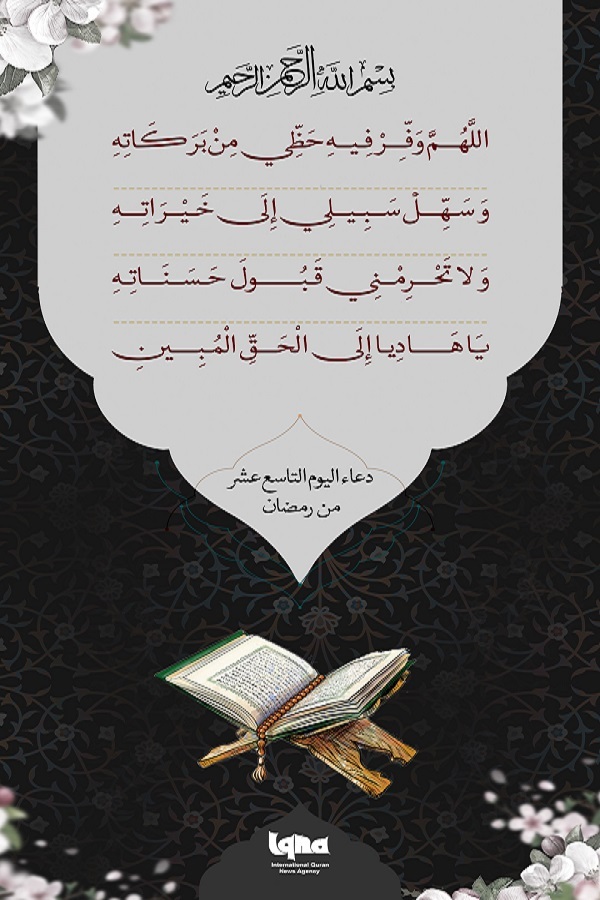 بِسْمِ اللَّهِ الرَّحْمَنِ الرَّحِيمِ
اللَّهُمَّ وَفِّرْ فِيهِ حَظِّي مِنْ بَرَكَاتِهِ
وَ سَهِّلْ سَبِيلِي إِلَى خَيْرَاتِهِ
وَ لا تَحْرِمْنِي قَبُولَ حَسَنَاتِهِ
يَا هَادِيا إِلَى الْحَقِّ الْمُبِينِ
دعاء اليوم التاسع عشر
من رمضان
iqna
International Quran
News Agency